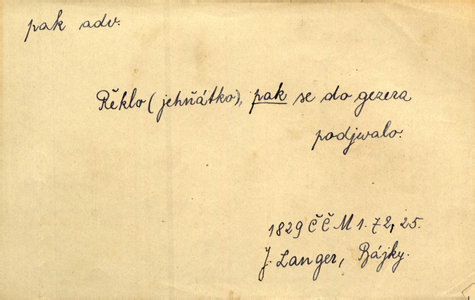 pak adv.
Řěklo (jehňátko), pak se do gezera
podjwalo.
1829 ČČM 1. 72, 25.
J. Langer, Bájky.